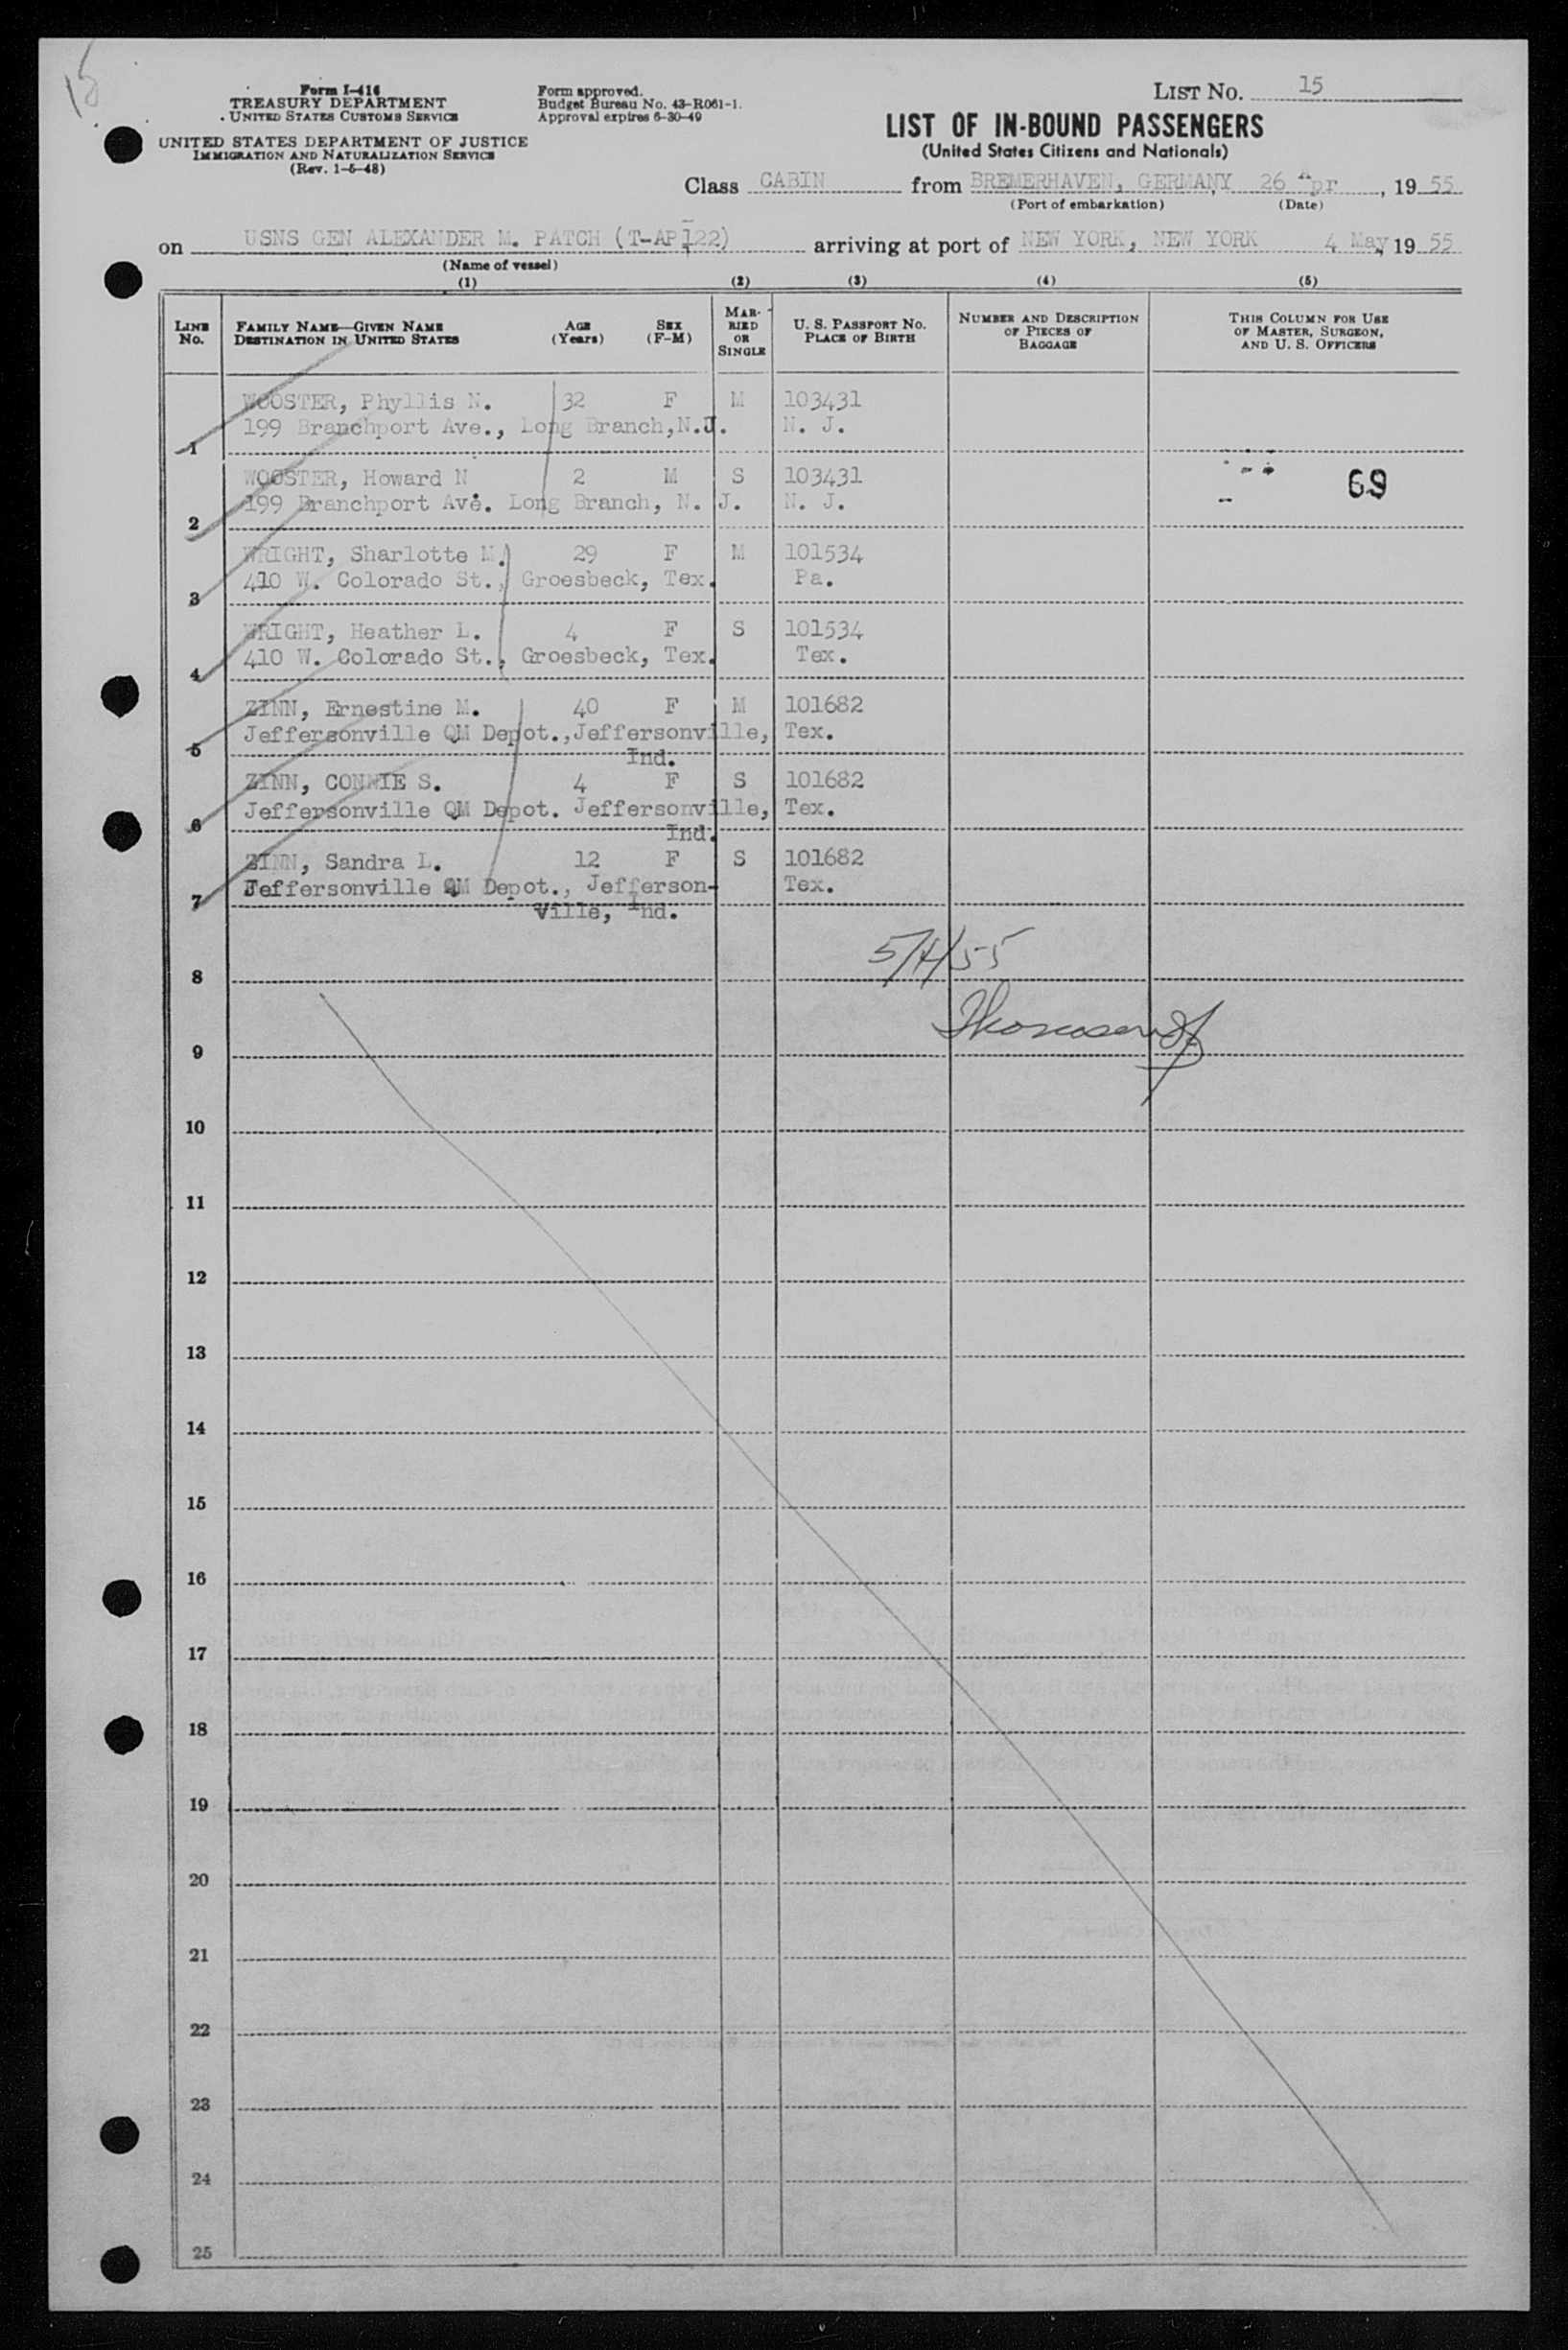 15
Form I-416
TREASURY DEPARTMENT
UNITED STATES CUSTOMS SERVICE
UNITED STATES DEPARTMENT OF JUSTICE
IMMIGRATION AND NATURALIZATION SERVICE
(Rev. 1-5-48)
Form approved.
Budget Bureau No. 43-R061-1.
Approval expires 6-30-49
LIST No. 15
LIST OF IN-BOUND PASSENGERS
(United States Citizens and Nationals)
Class CABIN from BREMERHAVEN, GERMANY 26 Apr, 19 55
(Port of embarkation) (Date)
on USNS GEN ALEXANDER M. PATCH (T-AP-122) arriving at port of NEW YORK, NEW YORK 4 May, 19 55
(Name of vessel)
(1) (2) (3) (4) (5)
LINE No.
FAMILY NAME—GIVEN NAME
DESTINATION IN UNITED STATES
AGE (Years)
SEX (F-M)
MARRIED OR SINGLE
U. S. PASSPORT No.
PLACE OF BIRTH
NUMBER AND DESCRIPTION OF PIECES OF BAGGAGE
THIS COLUMN FOR USE OF MASTER, SURGEON, AND U. S. OFFICERS
WOOSTER, Phyllis N. 32 F M 103431
1 199 Branchport Ave., Long Branch,N.J. N. J.
WOOSTER, Howard N 2 M S 103431 69
2 199 Branchport Ave. Long Branch, N. J. N. J.
WRIGHT, Sharlotte M. 29 F M 101534
3 410 W. Colorado St., Groesbeck, Tex. Pa.
WRIGHT, Heather L. 4 F S 101534
4 410 W. Colorado St., Groesbeck, Tex. Tex.
ZINN, Ernestine M. 40 F M 101682
5 Jeffersonville QM Depot.,Jeffersonville, Tex.
Ind.
ZINN, CONNIE S. 4 F S 101682
6 Jeffersonville QM Depot. Jeffersonville, Tex.
Ind.
ZINN, Sandra L. 12 F S 101682
7 Jeffersonville QM Depot., Jefferson- Tex.
Ville, Ind.
5/4/55
8
9
10
11
12
13
14
15
16
17
18
19
20
21
22
23
24
25